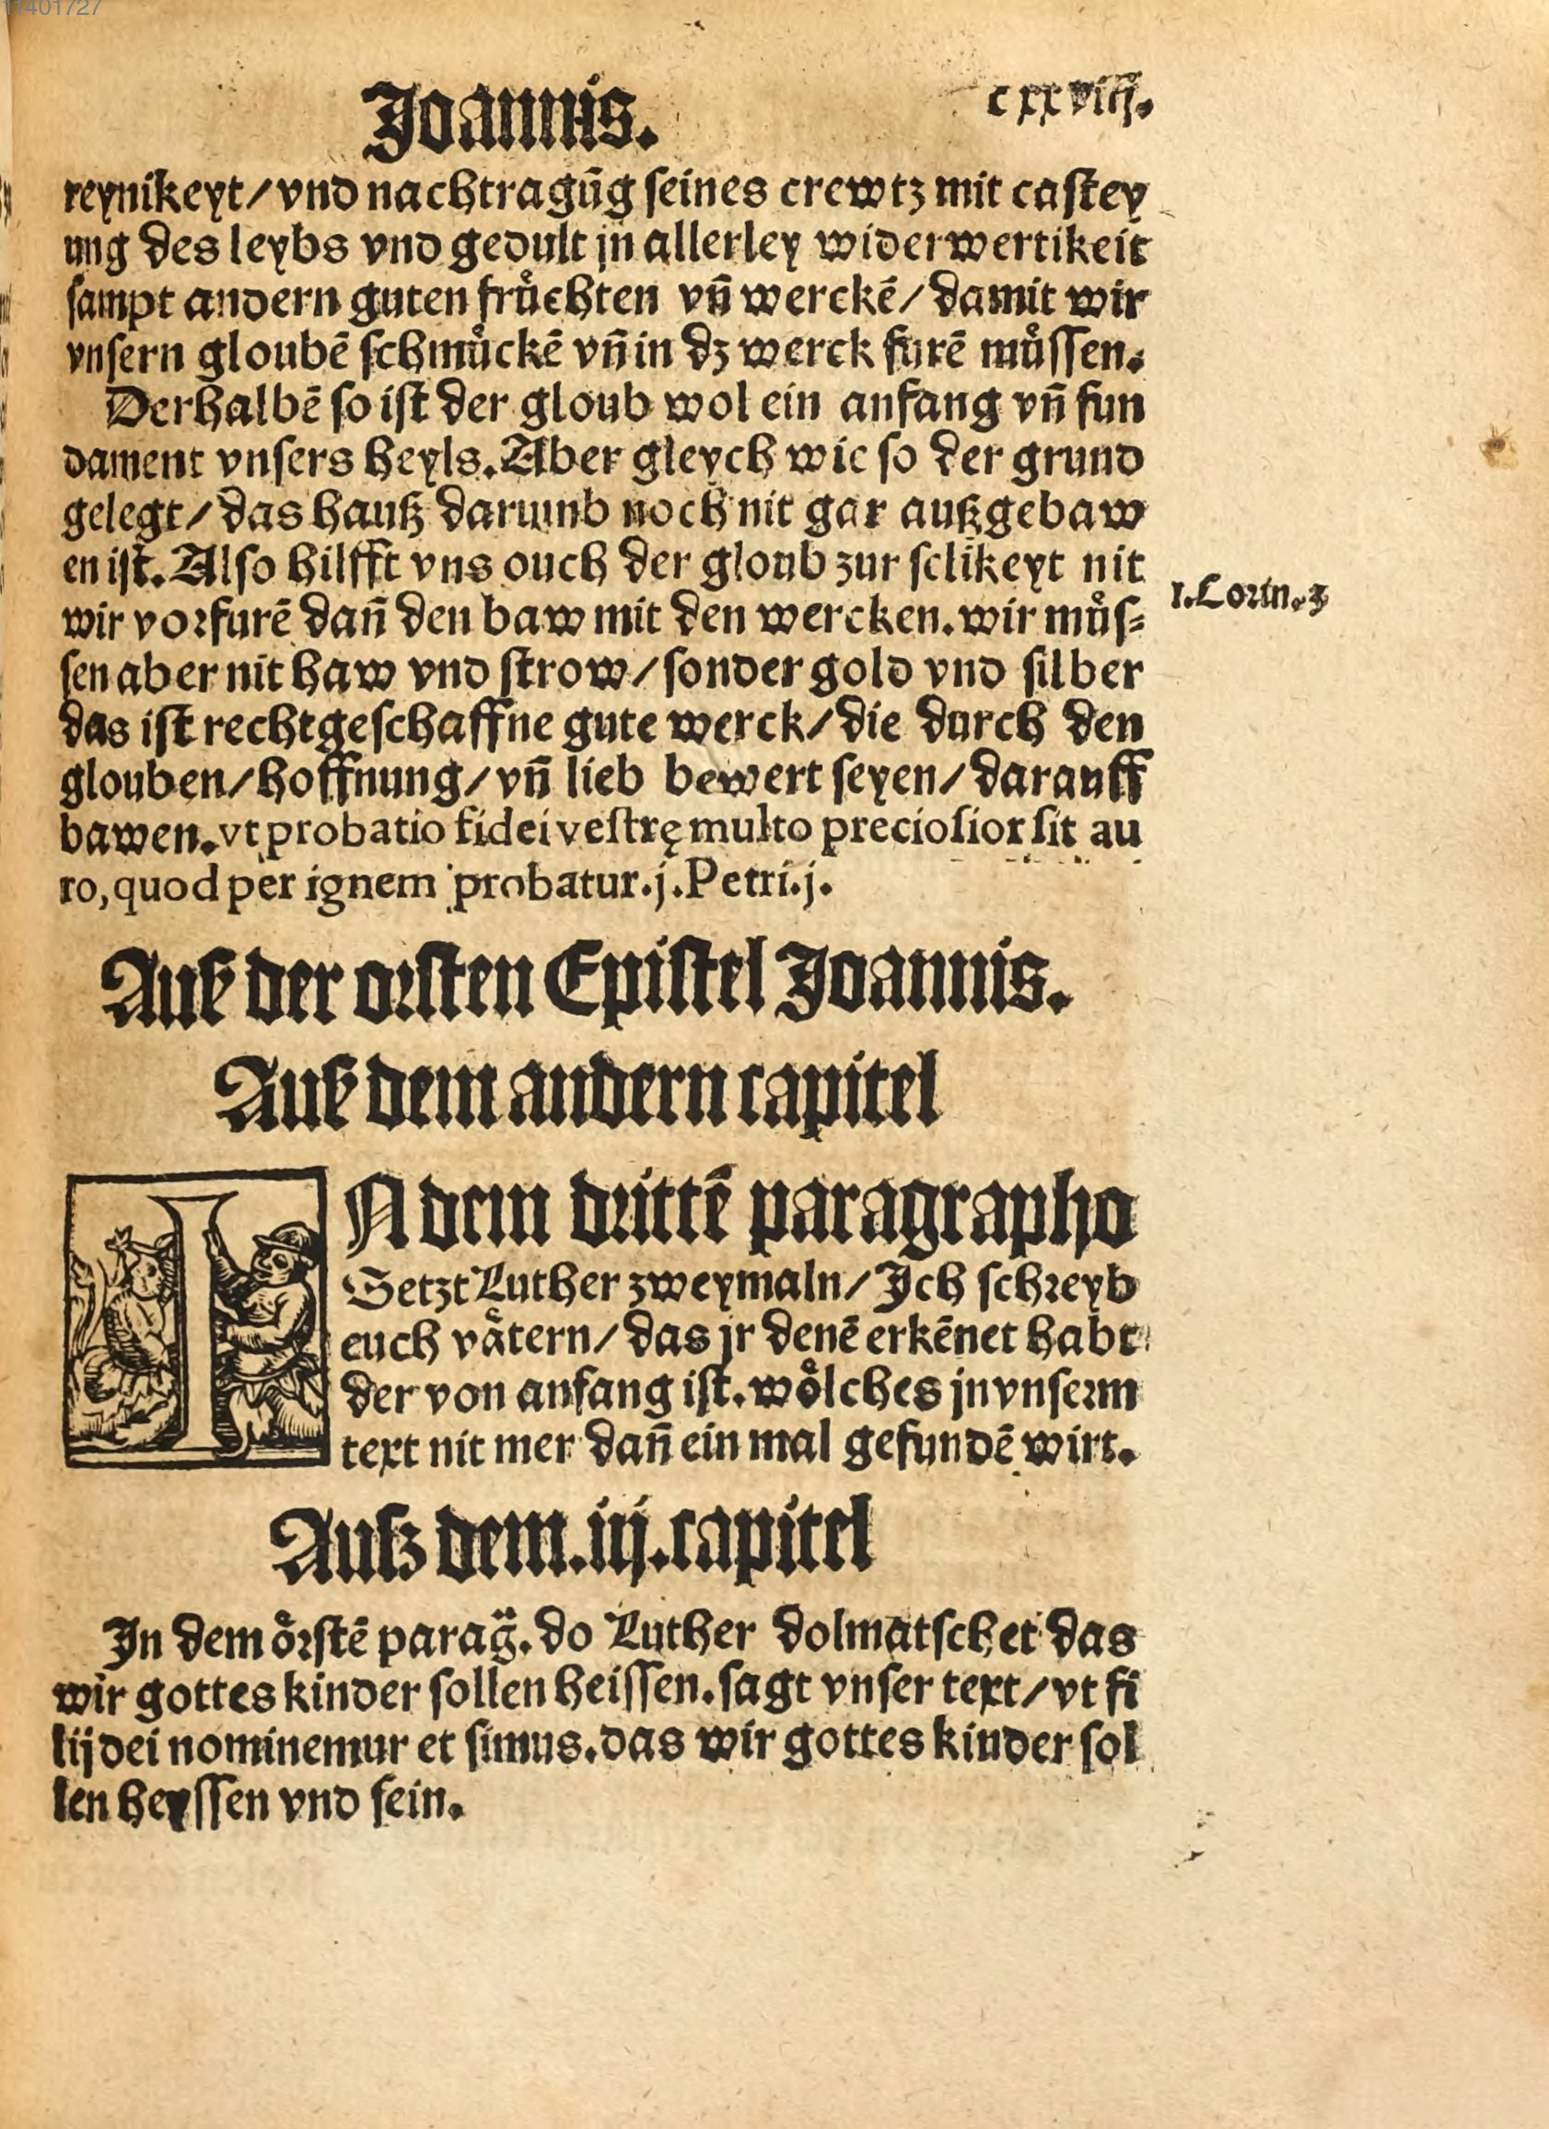 11401727
Joannis.
cxxviij.
reynikeyt/vnd nachtragūg seines crewtz mit castey
ung des leybs vnd gedult jn allerley widerwertikeit
sampt andern guten frůchten vñ werckē/damit wir
vnsern gloubē schmůckē vñ in dz werck furē můssen.
Derhalbē so ist der gloub wol ein anfang vñ fun
dament vnsers heyls. Aber gleych wie so der grund
gelegt/das hauß darumb noch nit gar außgebaw
en ist. Also hilfft vns ouch der gloub zur selikeyt nit
wir vorfurē dañ den baw mit den wercken. wir můs⸗
1.Corin.3
sen aber nit haw vnd strow/sonder gold vnd silber
das ist rechtgeschaffne gute werck/die durch den
glouben/hoffnung/vñ lieb bewert seyen/darauff
bawen. vt probatio fidei vestrę multo preciosior sit au
ro, quod per ignem probatur.j.Petri.j.
Auß der orsten Epistel Joannis.
Auß dem andern capitel
IN dem drittē paragrapho
Setzt Luther zweymaln/Jch schreyb
euch våtern/das jr denē erkēnet habt
der von anfang ist. wo̊lches jn vnserm
text nit mer dañ ein mal gefundē wirt.
Auß dem.iij.capitel
Jn dem o̊rstē parag̈. do Luther dolmatschet das
wir gottes kinder sollen heissen. sagt vnser text/vt fi
lij dei nominemur et simus. das wir gottes kinder sol
len heyssen vnd sein.